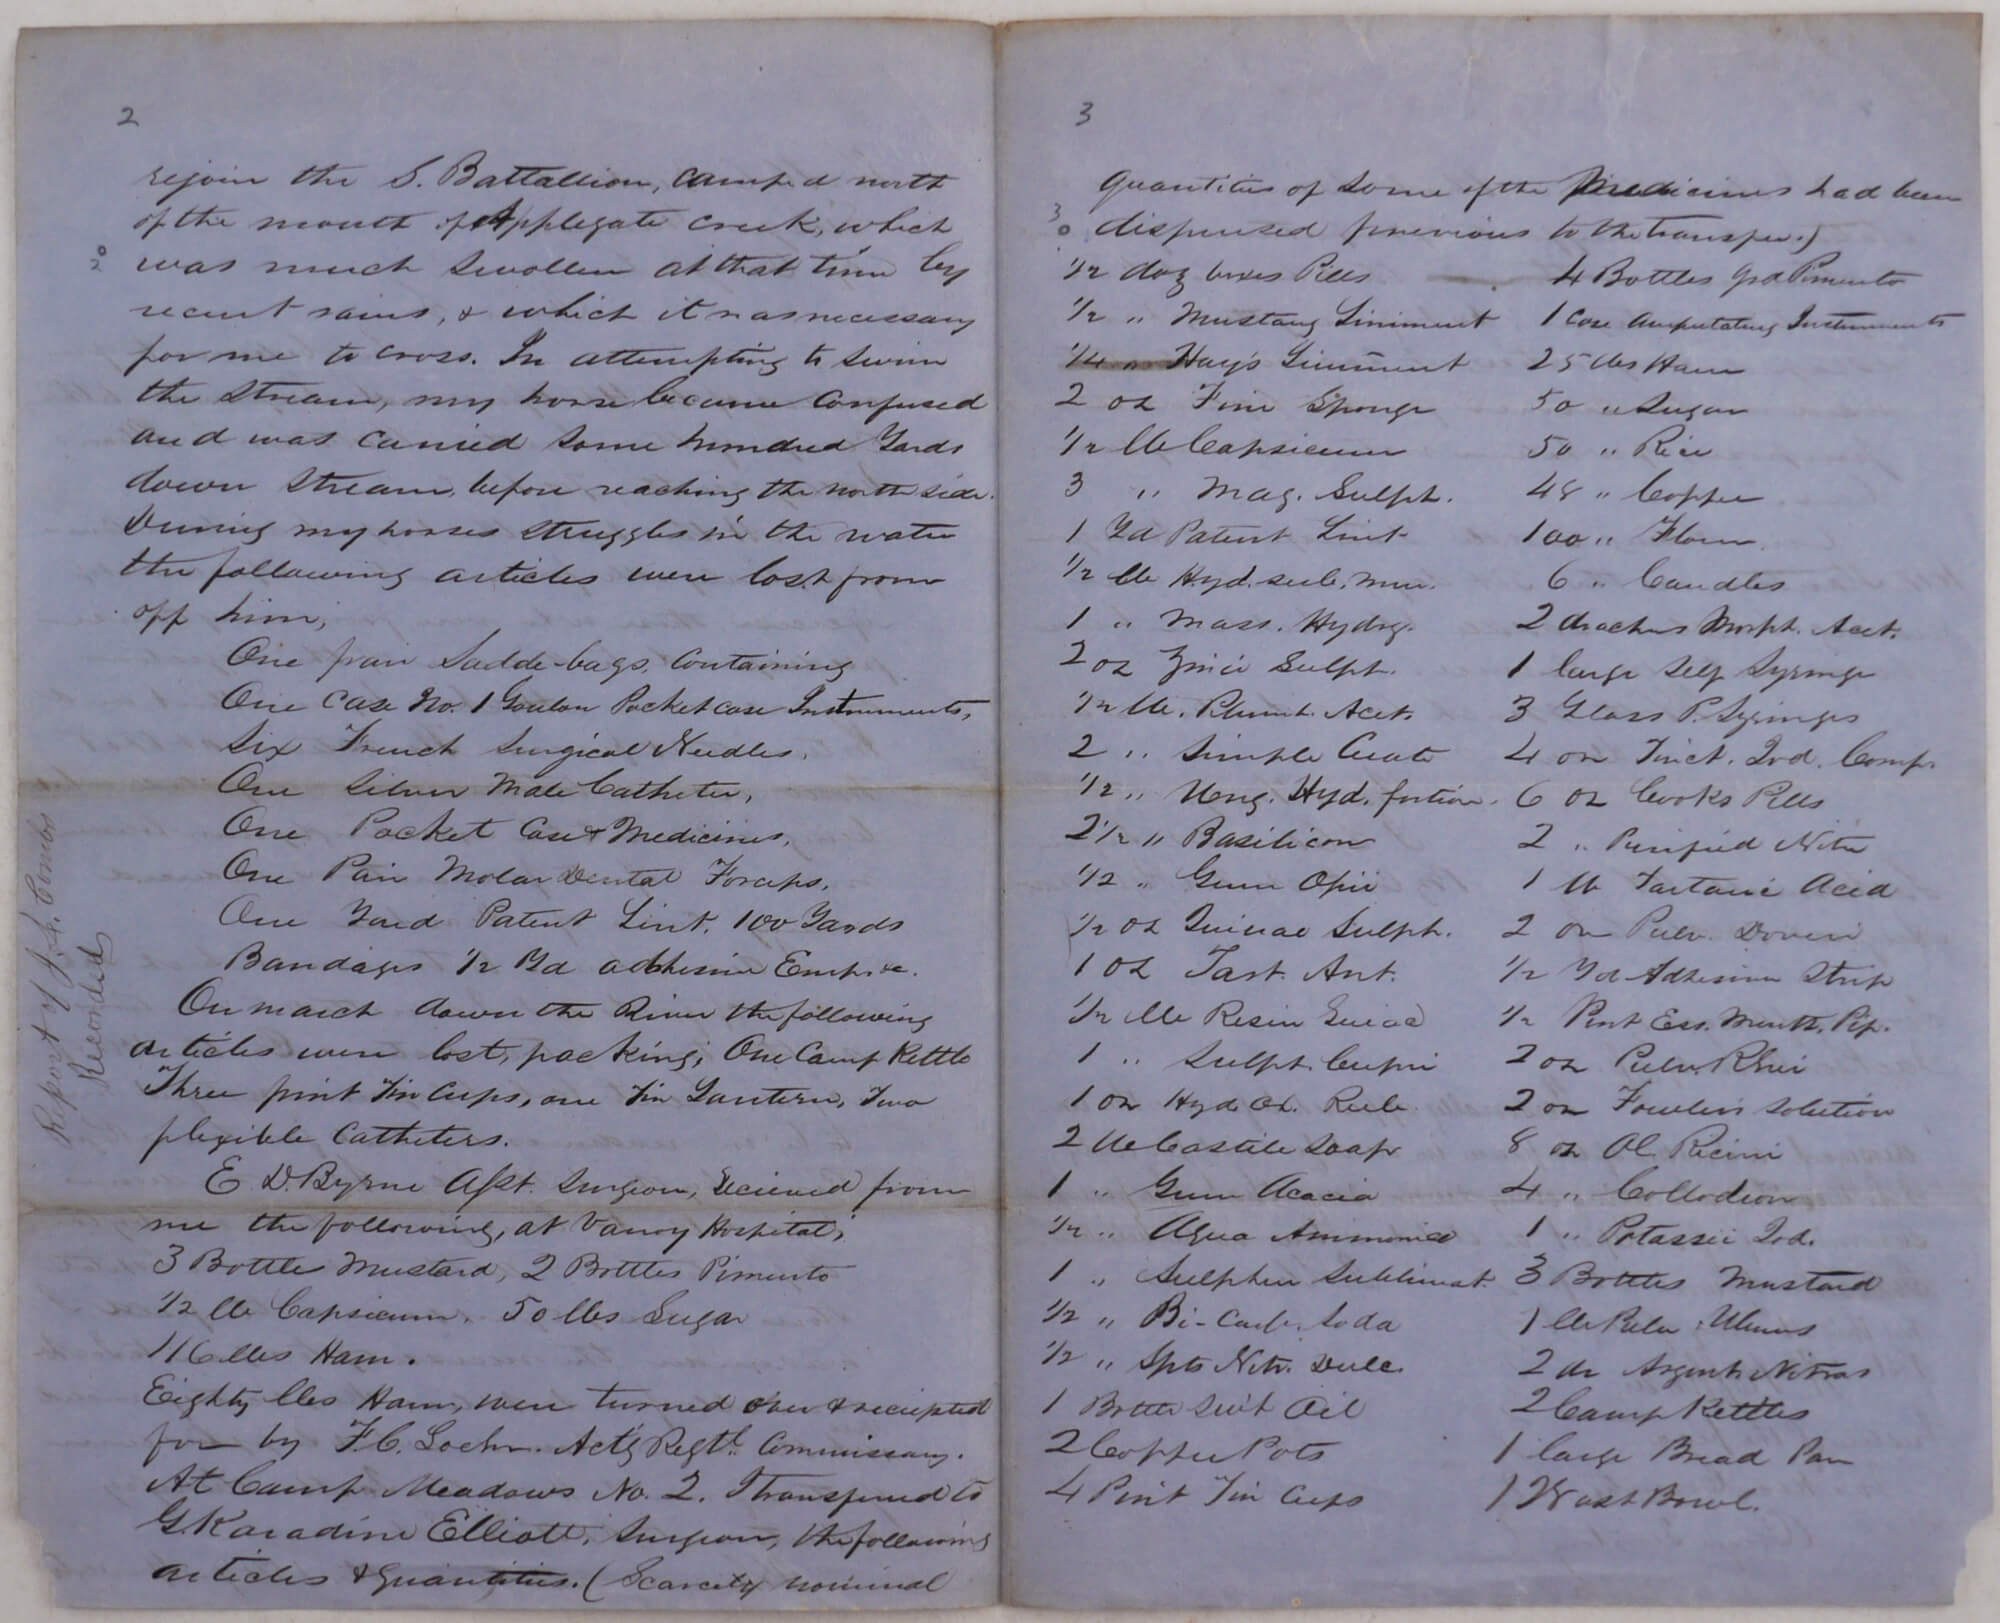 2
rejoin the S. Battallion, camped north
of the mouth of Applegate creek, which
was much swollen at that time by
recent rains, & which it was necessary
for me to cross. In attempting to swim
the stream, my horse became confused
and was carried some hundred Yards
down stream, before reaching the north side.
During my horses struggles in the water
the following articles were lost from
off him;
One pair Saddle-bags, containing
One case No. 1 Pocket case Instruments,
Six French Surgical Needles.
One Silver Male Catheter,
One Pocket Case & Medicines,
One Pair Molar Dental Forceps.
One Yard Patent Lint. 100 Yards
Bandages 1/2 Yd adhesive Emps &c.
On march down the River the following
articles were lost, packing; One Camp Kettle
Three pint Tin Cups, one Tin Lantern, Two
flexible Catheters.
E D. Byrne Asst. Surgeon, Recieved from
me the following, at Vanoy Hospital;
3 Bottle Mustard, 2 Bottles Pimento
1/2 lb Capsicum. 50 lbs Sugar
116 lbs Ham.
Eighty lbs Ham, were turned over & reciepted
for by F. C. Act'g Regtl. Commissary.
At Camp Meadows No. 2. I transfered to
G Karadine Elliott, Surgeon, the following
articles & quantities. (Scarcely nominal
Report of J. L. Combs
Recorded
3
quantities of some of the Medicines had been
dispensed previous to the transfer.)
1/2 doz boxes Pills
1/2 " Mustang Liniment
1/4 " Hay's Liniment
2 oz Fine Sponge
1/2 lb Capsicum
3 " Mag. Sulph.
1 Yd Patent Lint
1/2 lb Hyd. sub. mur.
1 " Mass. Hydrg.
2 oz Zinci Sulph.
1/2 lb. Plumb. Acet.
2 " Simple Cerate
1/2 " Ung. Hyd. fortior.
2 1/2 " Basilicon
1/2 " Gum Opii
1/2 oz Quinae Sulph.
1 oz Tart. Ant.
1/2 lb Resin Guiac
1 " Sulph. Cupri
1 oz Hyd. Ox. Rub.
2 lb Castile Soap
1 " Gum Acacia
1/2 " Aqua Ammonia
1 " Sulphur Sublimat.
1/2 " Bi-Carb. Soda
1/2 " Spts Nitr. Dulc.
1 Bottle Sw't Oil
2 Copper Pots
4 Pint Tin Cups
4 Bottles grd Pimento
1 Case Amputating Instruments
25 lbs Ham
50 " Sugar
50 " Rice
48 " Coffee
100 " Flour
6 " Candles
2 drachms Morph. Acet.
1 large Self Syringe
3 Glass P. Syringes
4 oz Tinct. Iod. Comp.
6 oz Cooks Pills
2 " Purified Nitre
1 lb Tartaric Acid
2 oz Pulv. Doveri
1/2 Yd Adhesive Strip
1/2 Pint Ess. Menth. Pip.
2 oz Pulv. Rhei
2 oz Fowler's Solution
8 oz Ol Ricini
4 " Collodion
1 " Potassii Iod.
3 Bottles Mustard
1 lb Pulv. Ulmus
2 dr Argenti Nitras
2 Camp Kettles
1 large Bread Pan
1 Wash Bowl.